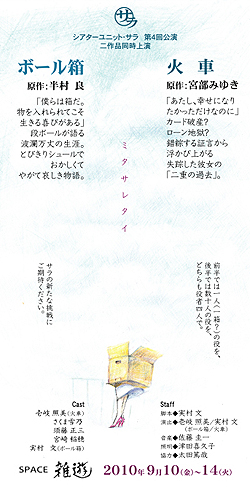 サラ
シアターユニット・サラ 第4回公演
二作品同時上演
ボール箱
原作：半村 良
「僕らは箱だ。
物を入れられてこそ
生きる喜びがある」
段ボールが語る
波瀾万丈の生涯。
とびきりシュールで
おかしくて
やがて哀しき物語。
火 車
原作：宮部みゆき
「あたし、幸せになり
たかっただけなのに」
カード破産？
ローン地獄？
錯綜する証言から
浮かび上がる
失踪した彼女の
「二重の過去」。
ミタサレタイ
前半では一人（一箱？）の役を、
後半では数十人の役を、
どちらも役者四人で。
サラの新たな挑戦に
ご期待ください。
Cast
壱岐 照美（火車）
さくま雪乃
須藤 正三
宮崎 稲穂
実村 文（ボール箱）
Staff
脚本◆実村 文
演出◆壱岐 照美／実村 文
（ボール箱／火車）
音楽◆佐藤 圭一
照明◆津田喜久子
協力◆太田篤哉
SPACE 雑遊
2010年9月10（金）〜14（火）